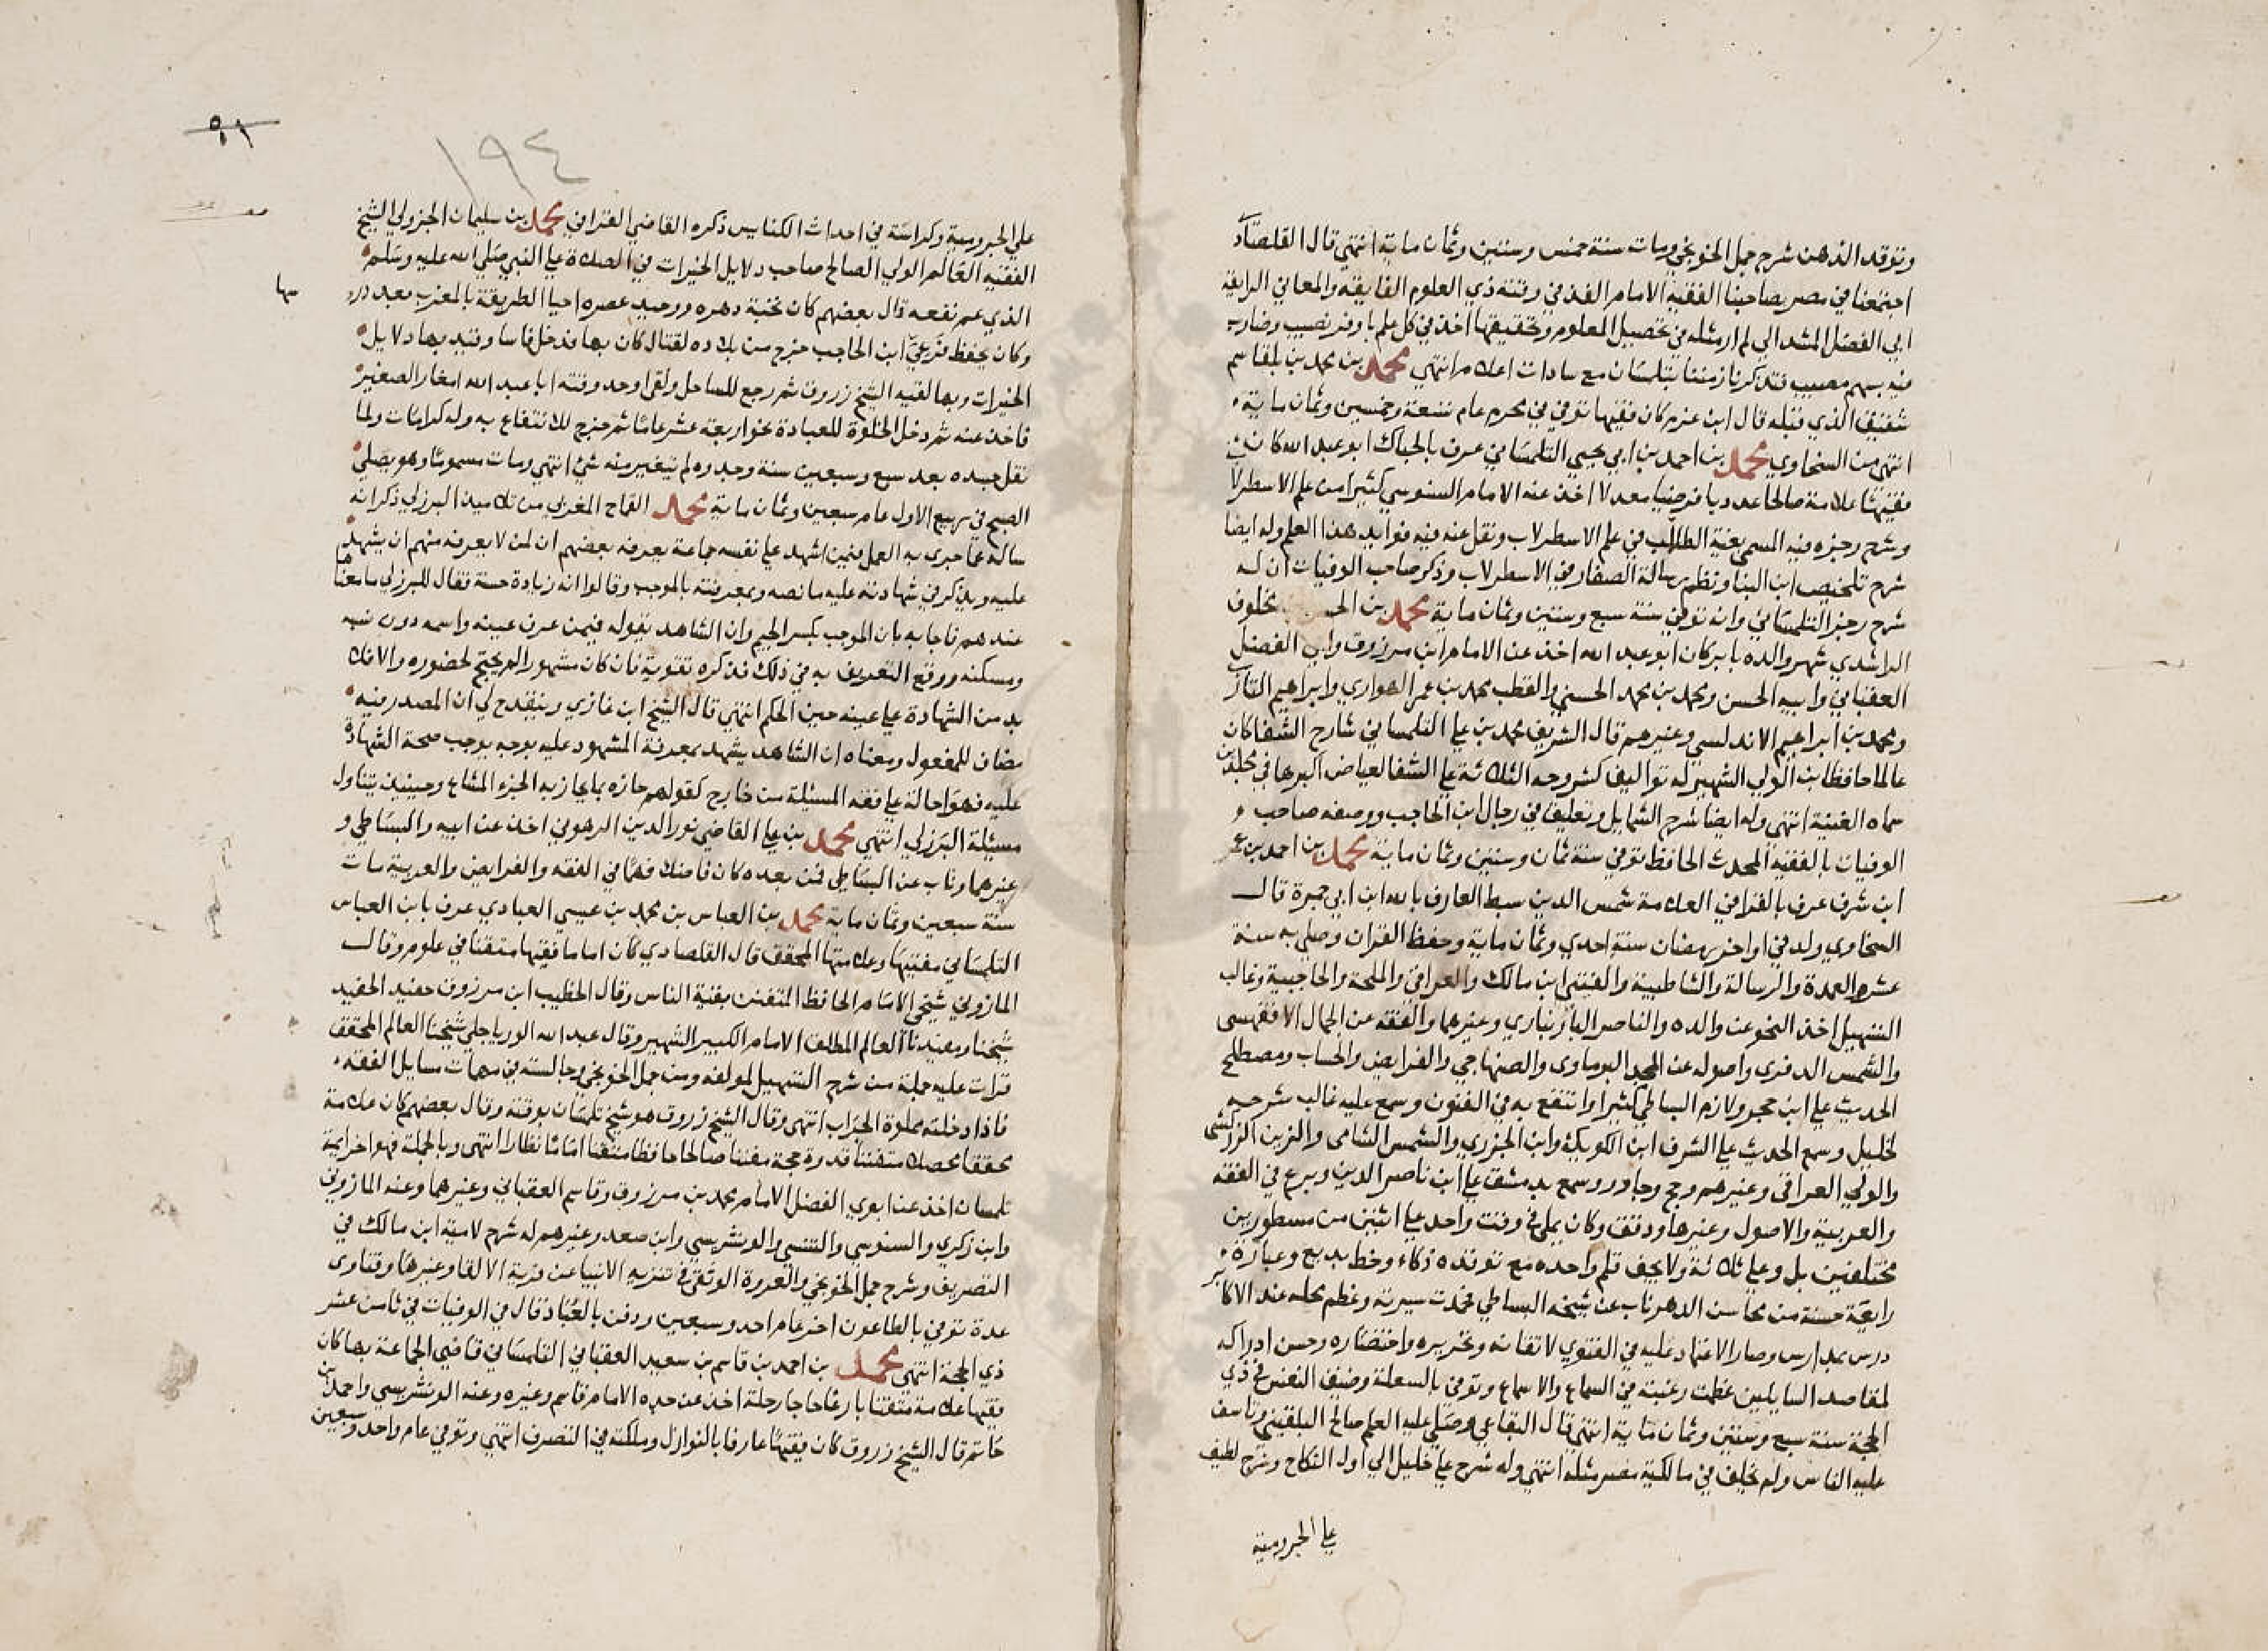 وتوقد الذهن شرح جمل الخونجي ومات سنة خمس وستين وثمان ماية انتهي قال القلصاد
اجتمعنا في مصر بصاحبنا الفقيه الامام الفذ في وقته ذي العلوم الفايقة والمعاني الرايقة
ابي الفضل المشدالي لم ار مثله في تحصيل العلوم وتحقيقها اخذ في كل علم باوفر نصيب وضارب
فيه بسهم مصيب فتذكرنا زمننا بتلمسان مع سادات اعلام انتهي محمد بن محمد بن بلقاسم
شقيق الذي قبله قال ابن عزم كان فقيها توفي في محرم عام تسعة وخمسين وثمان ماية
انتهي من السخاوي محمد بن احمد بن ابي يحيي التلمساني عرف بالحباك ابو عبد الله كان
فقيها علامة صالحا عدديا فرضيا معدلا اخذ عنه الامام السنوسي كثيرا من علم الاسطرلا
وشرح رجزه فيه المسمي بغية الطالب في علم الاسطرلاب ونقل عنه فيه فوايد هذا العلم وله ايضا
شرح تلخيص ابن البنا ونظم رسالة الصفار في الاسطرلاب وذكر صاحب الوفيات ان له
شرح رجز التلمساني وانه توفي سنة سبع وستين وثمان ماية محمد بن مخلوف
الراشدي شهر والده بابركان ابو عبد الله اخذ عن الامام ابن مرزوق وابي الفضل
العقباني وابيه الحسن ومحمد بن محمد الحسني والقطب محمد بن عمر الهواري وابراهيم التاز
ومحمد بن ابراهيم الاندلسي وغيرهم قال الشريف محمد بن علي التلمساني شارح الشفا كان
عالما حافظا ابن الولي الشهير له تواليف كشروحه الثلاثة علي الشفا لعياض اكبرها في مجلدين
سماه الغنية انتهي وله ايضا شرح الشمايل وتعليق في رجال ابن الحاجب ووصفه صاحب
الوفيات بالفقيه المحدث الحافظ توفي سنة ثمان وستين وثمان ماية محمد بن احمد بن عمر
ابن شرف عرف بالقرافي العلامة شمس الدين سبط العارف بالله ابن ابي جمرة قال
السخاوي ولد في اواخر رمضان سنة احدي وثمان ماية وحفظ القران وصلي به سنة
عشر والعمدة والرسالة والشاطبية والفيتي ابن مالك والعراقي والملحة والحاجبية وغالب
التسهيل اخذ النحو عن والده والناصر البارنباري وغيرهما والفقه عن الجمال الاقفهسي
والشمس الدفري واصوله عن المجد البرماوي والصنهاجي والفرايض والحساب ومصطلح
الحديث علي ابن حجر ولازم البساطي كثيرا وانتفع به في الفنون وسمع عليه غالب شرحه
لخليل وسمع الحديث علي الشرف ابن الكويك وابن الجزري والشمس الشامي والزين الزركشي
والولي العراقي وغيرهم وحج وجاور وسمع بدمشق علي ابن ناصر الدين وبرع في الفقه
والعربية والاصول وغيرها ودقق وكان يملي في وقت واحد علي اثنين من مسطورين
مختلفين بل وعلي ثلاثة ولا يجف قلم واحد مع توقده ذكاء وخط بديع وعبارة
رايعة حسنة من محاسن الدهر ناب عن شيخه البساطي فحمدت سيرته وعظم محله عند الاكابر
درس بمدارس وصار الاعتماد عليه في الفتوي لاتقانه وتحريره واختصاره وحسن ادراكه
لمقاصد السايلين عظمت رغبته في السماع والاسماع وتوفي بالسعلة وضيق النفس في ذي
الحجة سنة سبع وستين وثمان ماية انتهي قال البقاعي وصلي عليه العلم صالح البلقيني وتاسف
عليه الناس ولم يخلف في مالكية مصر مثله انتهي وله شرح علي خليل الي اول النكاح وشرح لطيف
علي الجرومية
٩١
١٩٤
علي الجرومية وكراسة في احداث الكنايس ذكره القاضي القرافي محمد بن سليمان الجزولي الشيخ
الفقيه العالم الولي الصالح صاحب دلايل الخيرات في الصلاة علي النبي صلي الله عليه وسلم
الذي عم نفعه قال بعضهم كان نخبة دهره ووحيد عصره احيا الطريقة بالمغرب بعد
وكان يحفظ فرعي ابن الحاجب خرج من بلاده لقتال كان بها فدخل فاسا وقيد بها دلايل
الخيرات وبها لقيه الشيخ زروق ثم رجع للساحل ولقي اوحد وقته ابا عبد الله امغار الصغير
فاخذ عنه ثم دخل الخلوة للعبادة نحو اربعة عشر عاما ثم خرج للانتفاع به وله كرامات ولما
نقل جسده بعد سبع وسبعين سنة وجدوه لم يتغير منه شئ انتهي ومات مسموما وهو يصلي
الصبح في ربيع الاول عام سبعين وثمان ماية محمد القماح المغربي من تلاميذ البرزلي ذكر انه
ساله عما جري به العمل فيمن اشهد علي نفسه جماعة يعرفه بعضهم ان لمن لا يعرفه منهم ان يشهد
عليه ويذكر في شهادته عليه ما نصه وبمعرفته بالموجب وقالوا انه زيادة حسنة فقال للبرزلي ما معناها
عندهم فاجابه بان الموجب بكسر الجيم وان الشاهد يقوله فيمن عرف عينه واسمه دون نسبه
ومسكنه ووقع التعريف به في ذلك فذكره تقوية فان كان مشهورا لم يحتج لحضوره والا فلا
بد من الشهادة علي عينه حين الحكم انتهي قال الشيخ ابن غازي وينقدح لي ان المصدر فيه
مضاف للمفعول ومعناه ان الشاهد يشهد بمعرفة المشهود عليه بوجه يوجب صحة الشهادة
عليه فهو احالة علي فقه المسيلة من خارج كقولهم حازه بما يحاز به الجزء المشاع وحينيذ يتناول
مسيلة البرزلي انتهي محمد بن علي القاضي نور الدين الرهوني اخذ عن ابيه والبساطي و
غيرهما وناب عن البساطي فمن بعده كان فاضلا فهما في الفقه والفرايض والعربية مات
سنة سبعين وثمان ماية محمد بن العباس بن محمد بن عيسي العبادي عرف بابن العباس
التلمساني مفتيها وعلامتها المحقق قال القلصادي كان اماما فقيها متفننا في علوم وقال
المازوني شيخي الامام الحافظ المتفنن بقية الناس وقال الخطيب ابن مرزوق حفيد الحفيد
شيخنا ومفيدنا العالم المطلق الامام الكبير الشهير وقال عبد الله الورياجلي شيخنا العالم المحقق
قرات عليه جملة من شرح التسهيل لمولفه ومن جمل الخونجي وجالسته في مهمات مسايل الفقه
فاذا دخلته مملوة الجراب انتهي وقال الشيخ زروق هو شيخ تلمسان بوقته وقال بعضهم كان علامة
محققا محصلا متفننا قدوة حجة مفننا صالحا حافظا متقنا اماما نظارا انتهي وبالجملة فهو اخر ايمة
تلمسان اخذ عن ابوي الفضل الامام محمد بن مرزوق وقاسم العقباني وغيرهما وعنه المازوني
وابن زكري والسنوسي والتنسي والونشريسي وابن صعد وغيرهم له شرح لامية ابن مالك في
التصريف وشرح جمل الخونجي والعروة الوثقي في تنزيه الانبيا عن فرية الالقا وغيرها وفتاوي
عدة توفي بالطاعون اخر عام احد وسبعين ودفن بالعباد قال في الوفيات في ثامن عشر
ذي الحجة انتهي محمد بن احمد بن قاسم بن سعيد العقباني التلمساني قاضي الجماعة بها كان
فقيها علامة متفننا بارعا حاجا رحلة اخذ عن جده الامام قاسم وغيره وعنه الونشريسي واحمد بن
حاتم قال الشيخ زروق كان فقيها عارفا بالنوازل وملكته في التصرف انتهي وتوفي عام واحد وسبعين